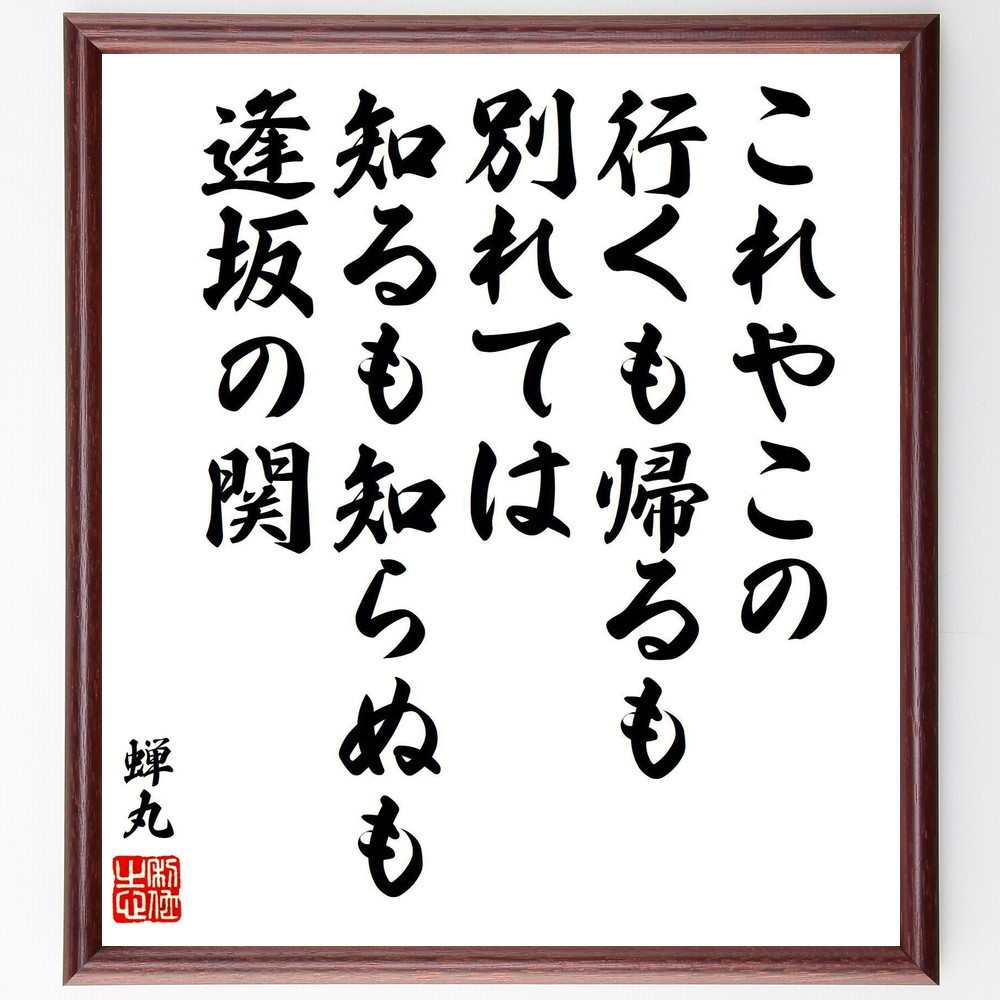 これやこの
行くも帰るも
別れては
知るも知らぬも
逢坂の関
蝉丸